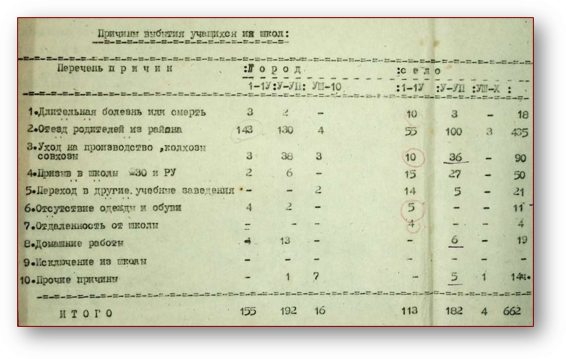 Причины выбытия учащихся из школ:
Перечень причин :Город :село
1-1У:У-УП: УШ-10 :1-1У :У-УП: :УШ-Х :
1.Длительная болезнь или смерть 3 2 - 10 3 - 18
2.Отезд родителей из района 143 130 4 55 100 3 435
3.Уход на производство ,колхозы
совхозы 3 38 3 10 36 - 90
4.Призыв в школы ФЗО и РУ 2 6 - 15 27 - 50
5.Переход в другие учебные заведения - - 2 14 5 - 21
6.Отсутствие одежды и обуви 4 2 - 5 - - 11
7.Отдаленность от школы - - - 4 - - 4
8.Домашние работы 4 13 - - 6 - 19
9.Исключение из школы - - - - - -
10.Прочие причины - 1 7 - 5 1 14.
ИТОГО 155 192 16 113 182 4 662